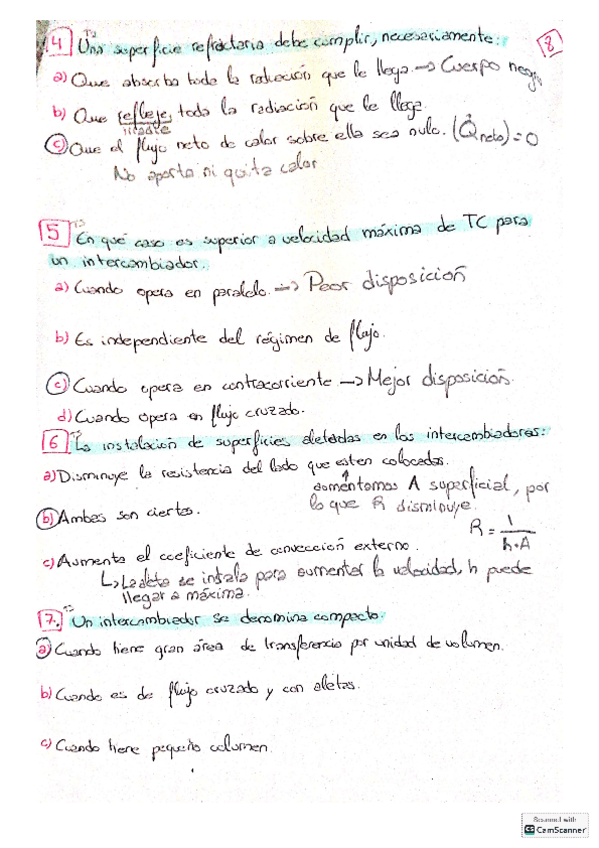 8
4 T2 Una superficie refractaria debe cumplir, necesariamente:
a) Que absorba toda la radiación que le llega → Cuerpo negro
b) Que refleje toda la radiación que le llega.
irradie
c) Que el flujo neto de calor sobre ella sea nulo. (Q̇neto) = 0
No aporta ni quita calor
5 En qué caso es superior a velocidad máxima de TC para
un intercambiador.
a) Cuando opera en paralelo. → Peor disposición
b) Es independiente del régimen de flujo.
c) Cuando opera en contracorriente → Mejor disposición.
d) Cuando opera en flujo cruzado.
6 La instalación de superficies aleteadas en los intercambiadores:
a) Disminuye la resistencia del lado que esten colocadas.
aumentamos A superficial, por
lo que R disminuye.
b) Ambas son ciertas.
R = 1 / h·A
c) Aumenta el coeficiente de convección externo.
↳ La aleta se instala para aumentar la velocidad, h puede
llegar a máxima.
7. Un intercambiador se denomina compacto:
a) Cuando tiene gran área de transferencia por unidad de volumen.
b) Cuando es de flujo cruzado y con aletas.
c) Cuando tiene pequeño volumen.
Scanned with
CS CamScanner